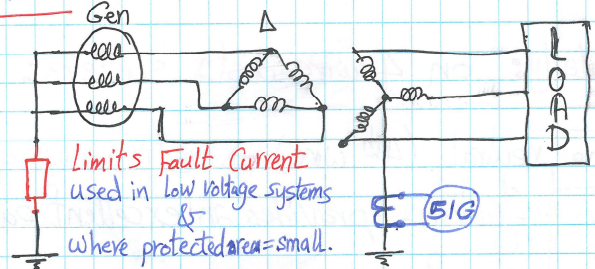 Gen
Δ
LOAD
Limits Fault Current
used in low voltage systems
&
where protected area = small.
51G